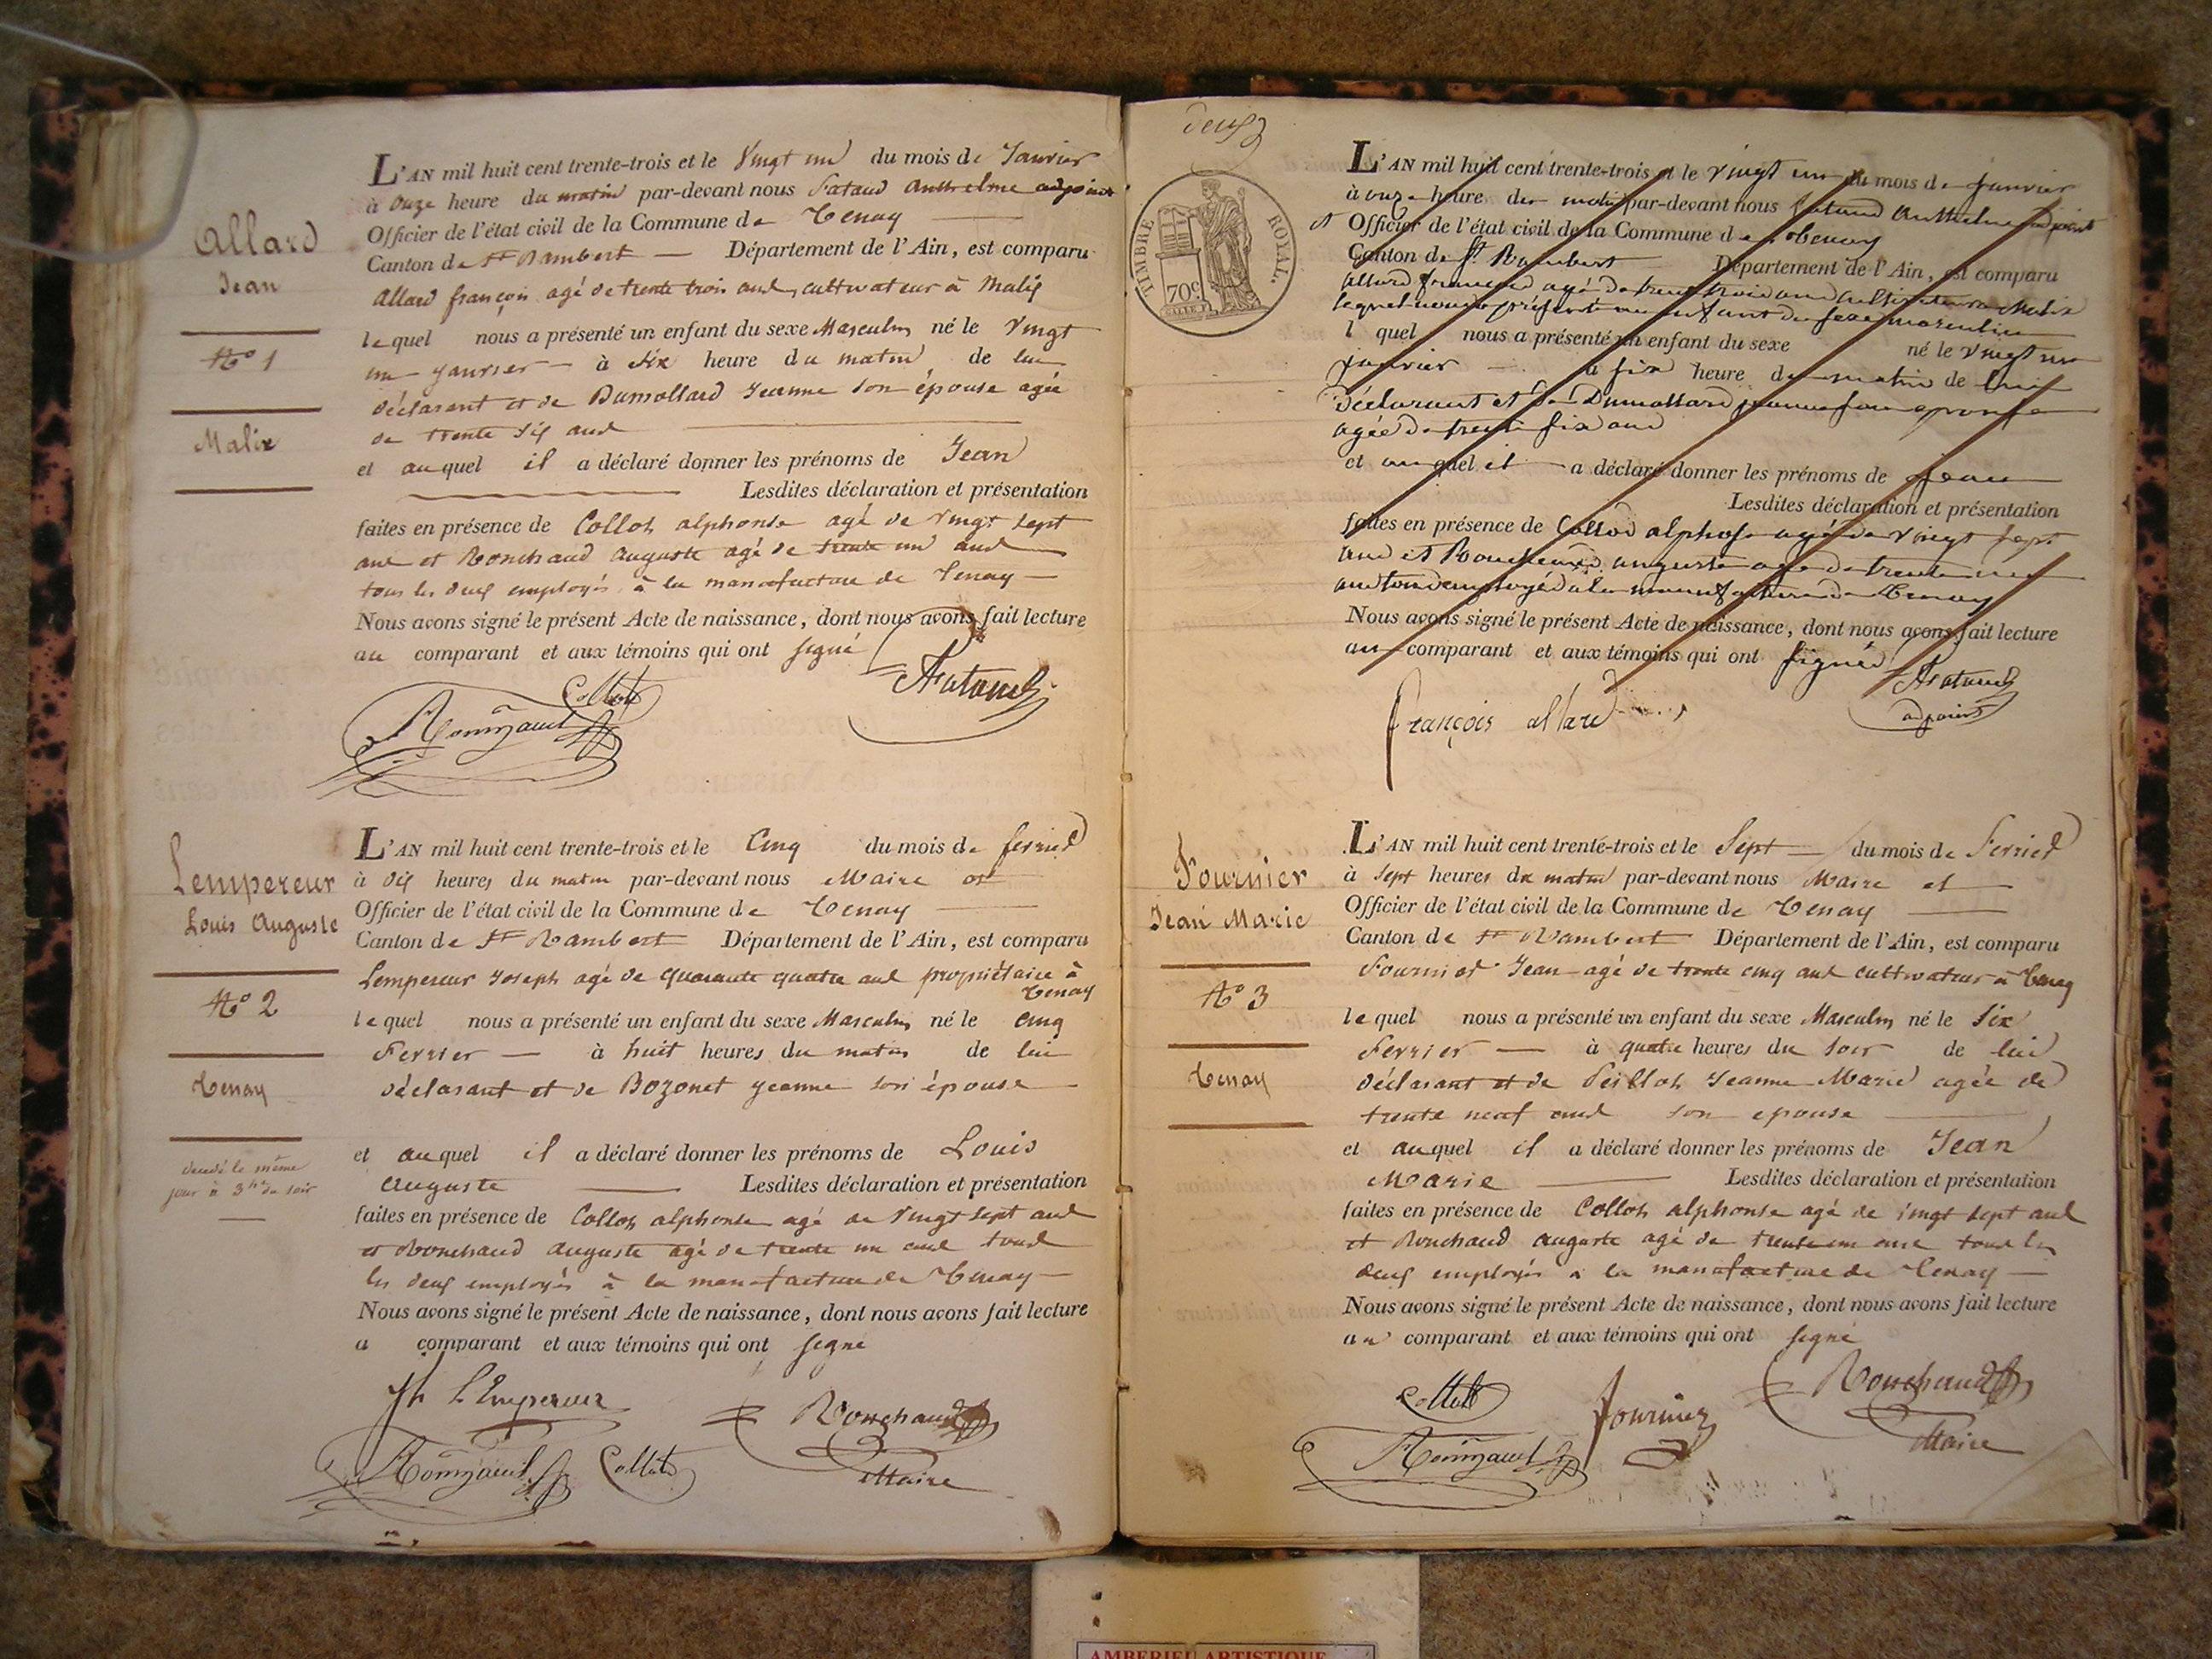 Allard
Jean
N° 1
Malix
L'AN mil huit cent trente-trois et le Vingt un du mois de Janvier
à onze heure du matin par-devant nous Fataud Anthelme adjoint
Officier de l'état civil de la Commune de Tenay
Canton de St Rambert Département de l'Ain, est comparu
Allard françois agé de trente trois ans, cultivateur à Malix
lequel nous a présenté un enfant du sexe Masculin né le Vingt
un janvier à six heure du matin de lui
déclarant et de Dumollard Jeanne son épouse agée
de trente six ans
et auquel il a déclaré donner les prénoms de Jean
Lesdites déclaration et présentation
faites en présence de Collot alphonse agé de vingt sept
ans et Ronchaud auguste agé de trente un ans
tous les deux employés à la manufacture de Tenay
Nous avons signé le présent Acte de naissance, dont nous avons fait lecture
au comparant et aux témoins qui ont signé
Collot
Fataud
Lempereur
Louis Auguste
N° 2
Tenay
décédé le même
jour à 3 hes du soir
L'AN mil huit cent trente-trois et le Cinq du mois de fevrier
à dix heures du matin par-devant nous Maire et
Officier de l'état civil de la Commune de Tenay
Canton de St Rambert Département de l'Ain, est comparu
Lempereur Joseph agé de quarante quatre ans propriétaire à
Tenay
lequel nous a présenté un enfant du sexe Masculin né le cinq
Fevrier à huit heures du matin de lui
déclarant et de Bozonet jeanne son épouse
et auquel il a déclaré donner les prénoms de Louis
Auguste Lesdites déclaration et présentation
faites en présence de Collot alphonse agé de vingt sept ans
et Ronchaud auguste agé de trente un ans tous
les deux employés à la manufacture de Tenay
Nous avons signé le présent Acte de naissance, dont nous avons fait lecture
a comparant et aux témoins qui ont signé
Jh L'Empereur
Ronchaud
Collot
Maire
deux
TIMBRE ROYAL.
70c
L'AN mil huit cent trente-trois et le vingt un du mois de janvier
à onze heure du matin par-devant nous fataud Anthelme adjoint
et Officier de l'état civil de la Commune de thenay
Canton de St Rambert Département de l'Ain, est comparu
allard francois agé de trente trois ans cultivateur a Malix
lequel nous a présenté un enfant du sexe masculin
l quel nous a présenté un enfant du sexe né le vingt un
janvier à six heure du matin de lui
déclarant et de Dumollard jeanne son epouse
agée de trente six ans
et auquel il a déclaré donner les prénoms de jean
Lesdites déclaration et présentation
faites en présence de Collod alphose agé de vingt sept
ans et Roncheaud auguste age de trente un
ans tous employé a la manufacture de tenay
Nous avons signé le présent Acte de naissance, dont nous avons fait lecture
au comparant et aux témoins qui ont signé
françois allard
Fataud
adjoint
Fournier
Jean Marie
N° 3
Tenay
L'AN mil huit cent trente-trois et le Sept du mois de Fevrier
à sept heures du matin par-devant nous Maire et
Officier de l'état civil de la Commune de Tenay
Canton de St Rambert Département de l'Ain, est comparu
Fournier Jean agé de trente cinq ans cultivateur à Tenay
lequel nous a présenté un enfant du sexe Masculin né le Six
Fevrier à quatre heures du soir de lui
déclarant et de Jeanne Marie agée de
trente neuf ans son epouse
et auquel il a déclaré donner les prénoms de Jean
Marie Lesdites déclaration et présentation
faites en présence de Collot alphonse agé de vingt sept ans
et Ronchaud auguste agé de trente un ans tous les
deux employés à la manufacture de Tenay
Nous avons signé le présent Acte de naissance, dont nous avons fait lecture
au comparant et aux témoins qui ont signé
Collot
fournier
Ronchaud
Maire
AMBERIEU ARTISTIQUE